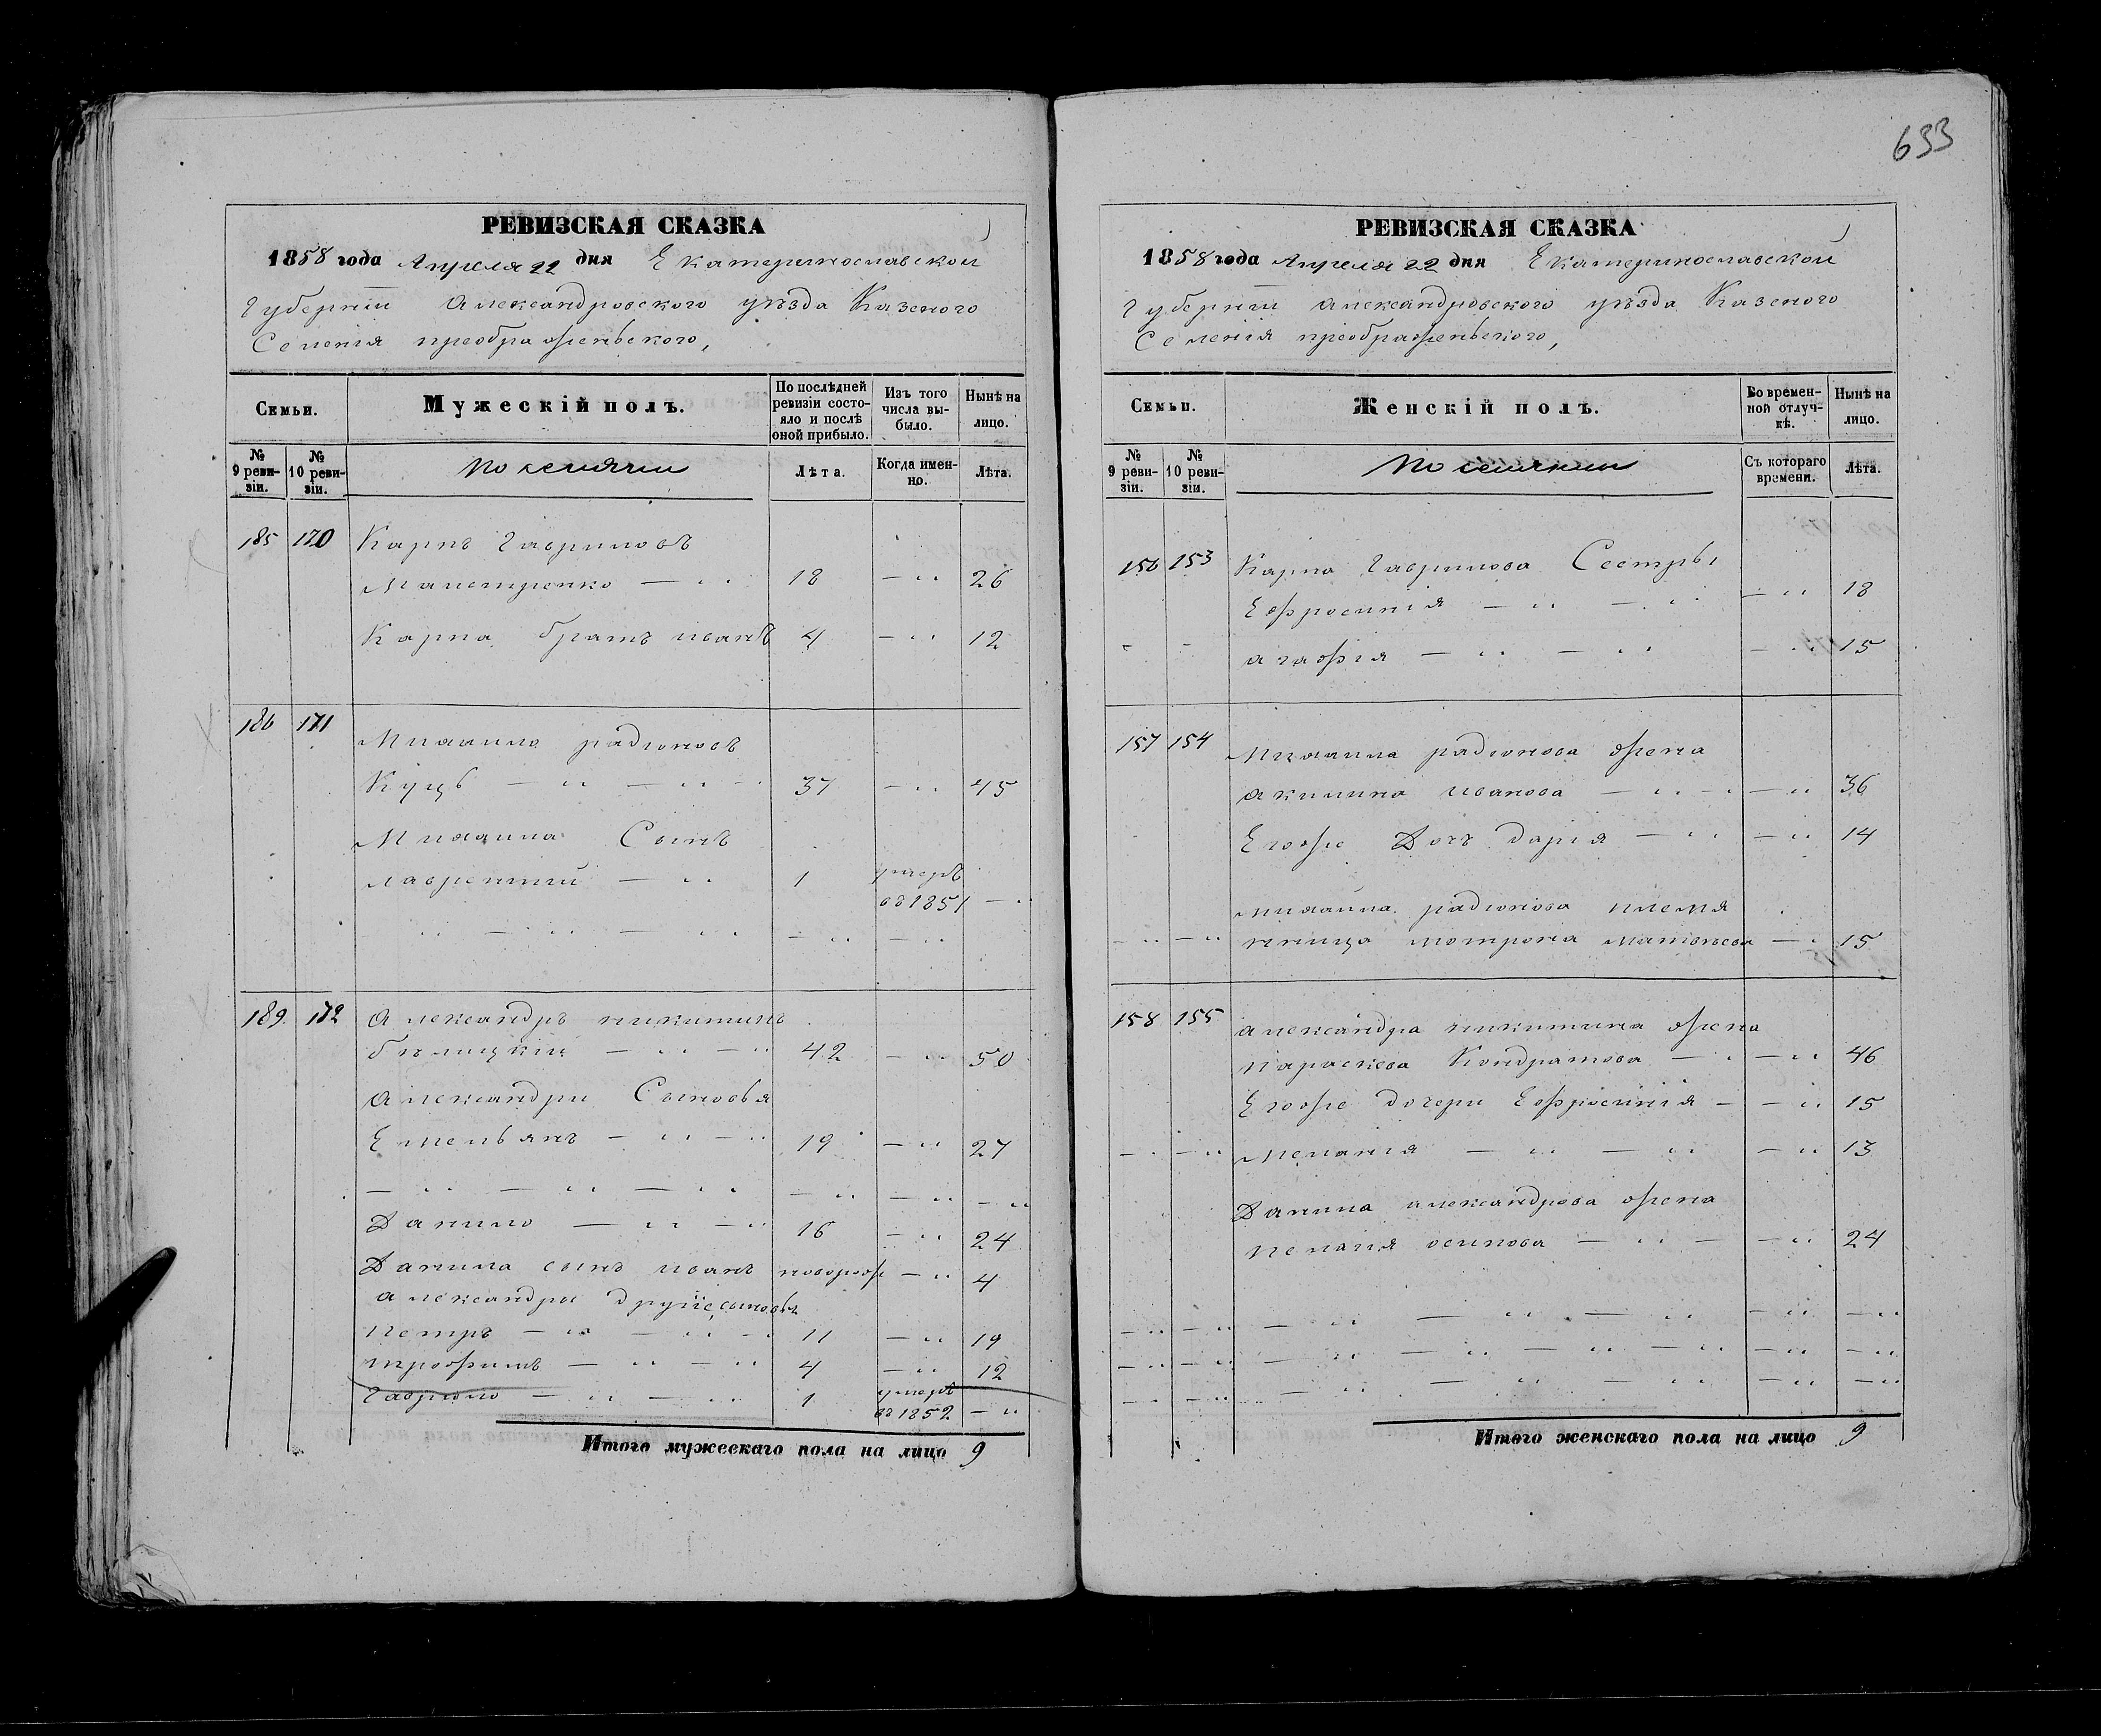 633
РЕВИЗСКАЯ СКАЗКА
1858 года Апреля 22 дня Екатеринославской
Губерніи Александровского уѣзда Казеного
Селенія преображеньского,
Семьи.
Мужескій полъ.
По послѣдней ревизіи состояло и послѣ оной прибыло.
Изъ того числа выбыло.
Нынѣ на лицо.
№ 9 ревизіи.
№ 10 ревизіи.
Поселяни
Лѣта.
Когда именно.
Лѣта.
185 170 Карпъ Гавриловъ
— „ 18 — „ 26
Карпа братъ иванъ 4 — „ 12
186 171 Михаило радионовъ
Куцъ — „ — „ — 37 — „ 45
Михаила Сынъ
лаврентий — „ 1 умеръ
въ 1851 — „
„ — „ — „ — „ — „
189 172 Александръ никитинъ
бѣлицкий — „ — „ 42 — „ 50
Александра Сыновья
Емельянъ — „ — „ 19 — „ 27
— „ — „ — „ — „ — „ — „
Данило — „ — „ 16 — „ 24
Данила сынъ иванъ оворож — „ 4
александра другіе сыновья
Петръ — „ — „ — 11 — „ 19
трофимъ — „ — „ 4 — „ 12
Гаврило — „ — „ 1 умеръ
въ 1852 — „
Итого мужескаго пола на лицо 9
РЕВИЗСКАЯ СКАЗКА
1858 года Апреля 22 дня Екатеринославской
Губерніи Александровского уѣзда Казеного
Селенія преображеньского,
Семьи.
Женскій полъ.
Во временной отлучкѣ.
Нынѣ на лицо.
№ 9 ревизіи.
№ 10 ревизіи.
Поселянки
Съ котораго времени.
Лѣта.
156 153 Карпа Гаврилова Сестры
Ефросинія — „ — „ — „ 18
- - агафія — „ — „ — „ 15
157 154 Михаила радионова жена
акилина иванова — „ — — „ 36
Егоже Дочь дарія — „ — „ 14
михаила радионова племя
— „ — „ нница мотрона матвѣева — „ 15
158 155 александра никитина жена
параскева Кондратова — „ — „ 46
Егоже дочери Ефросинія — — „ 15
— „ — „ меланія — „ — „ — „ 13
Данила александрова жена
пелагія осипова — „ — — „ 24
— „ — „ — „ — „ — „ — „ — „
— „ — „ — „ — „ — „ — „ — „ — „
— „ — „ — „ — „ — „ — „ — „
Итого женскаго пола на лицо 9